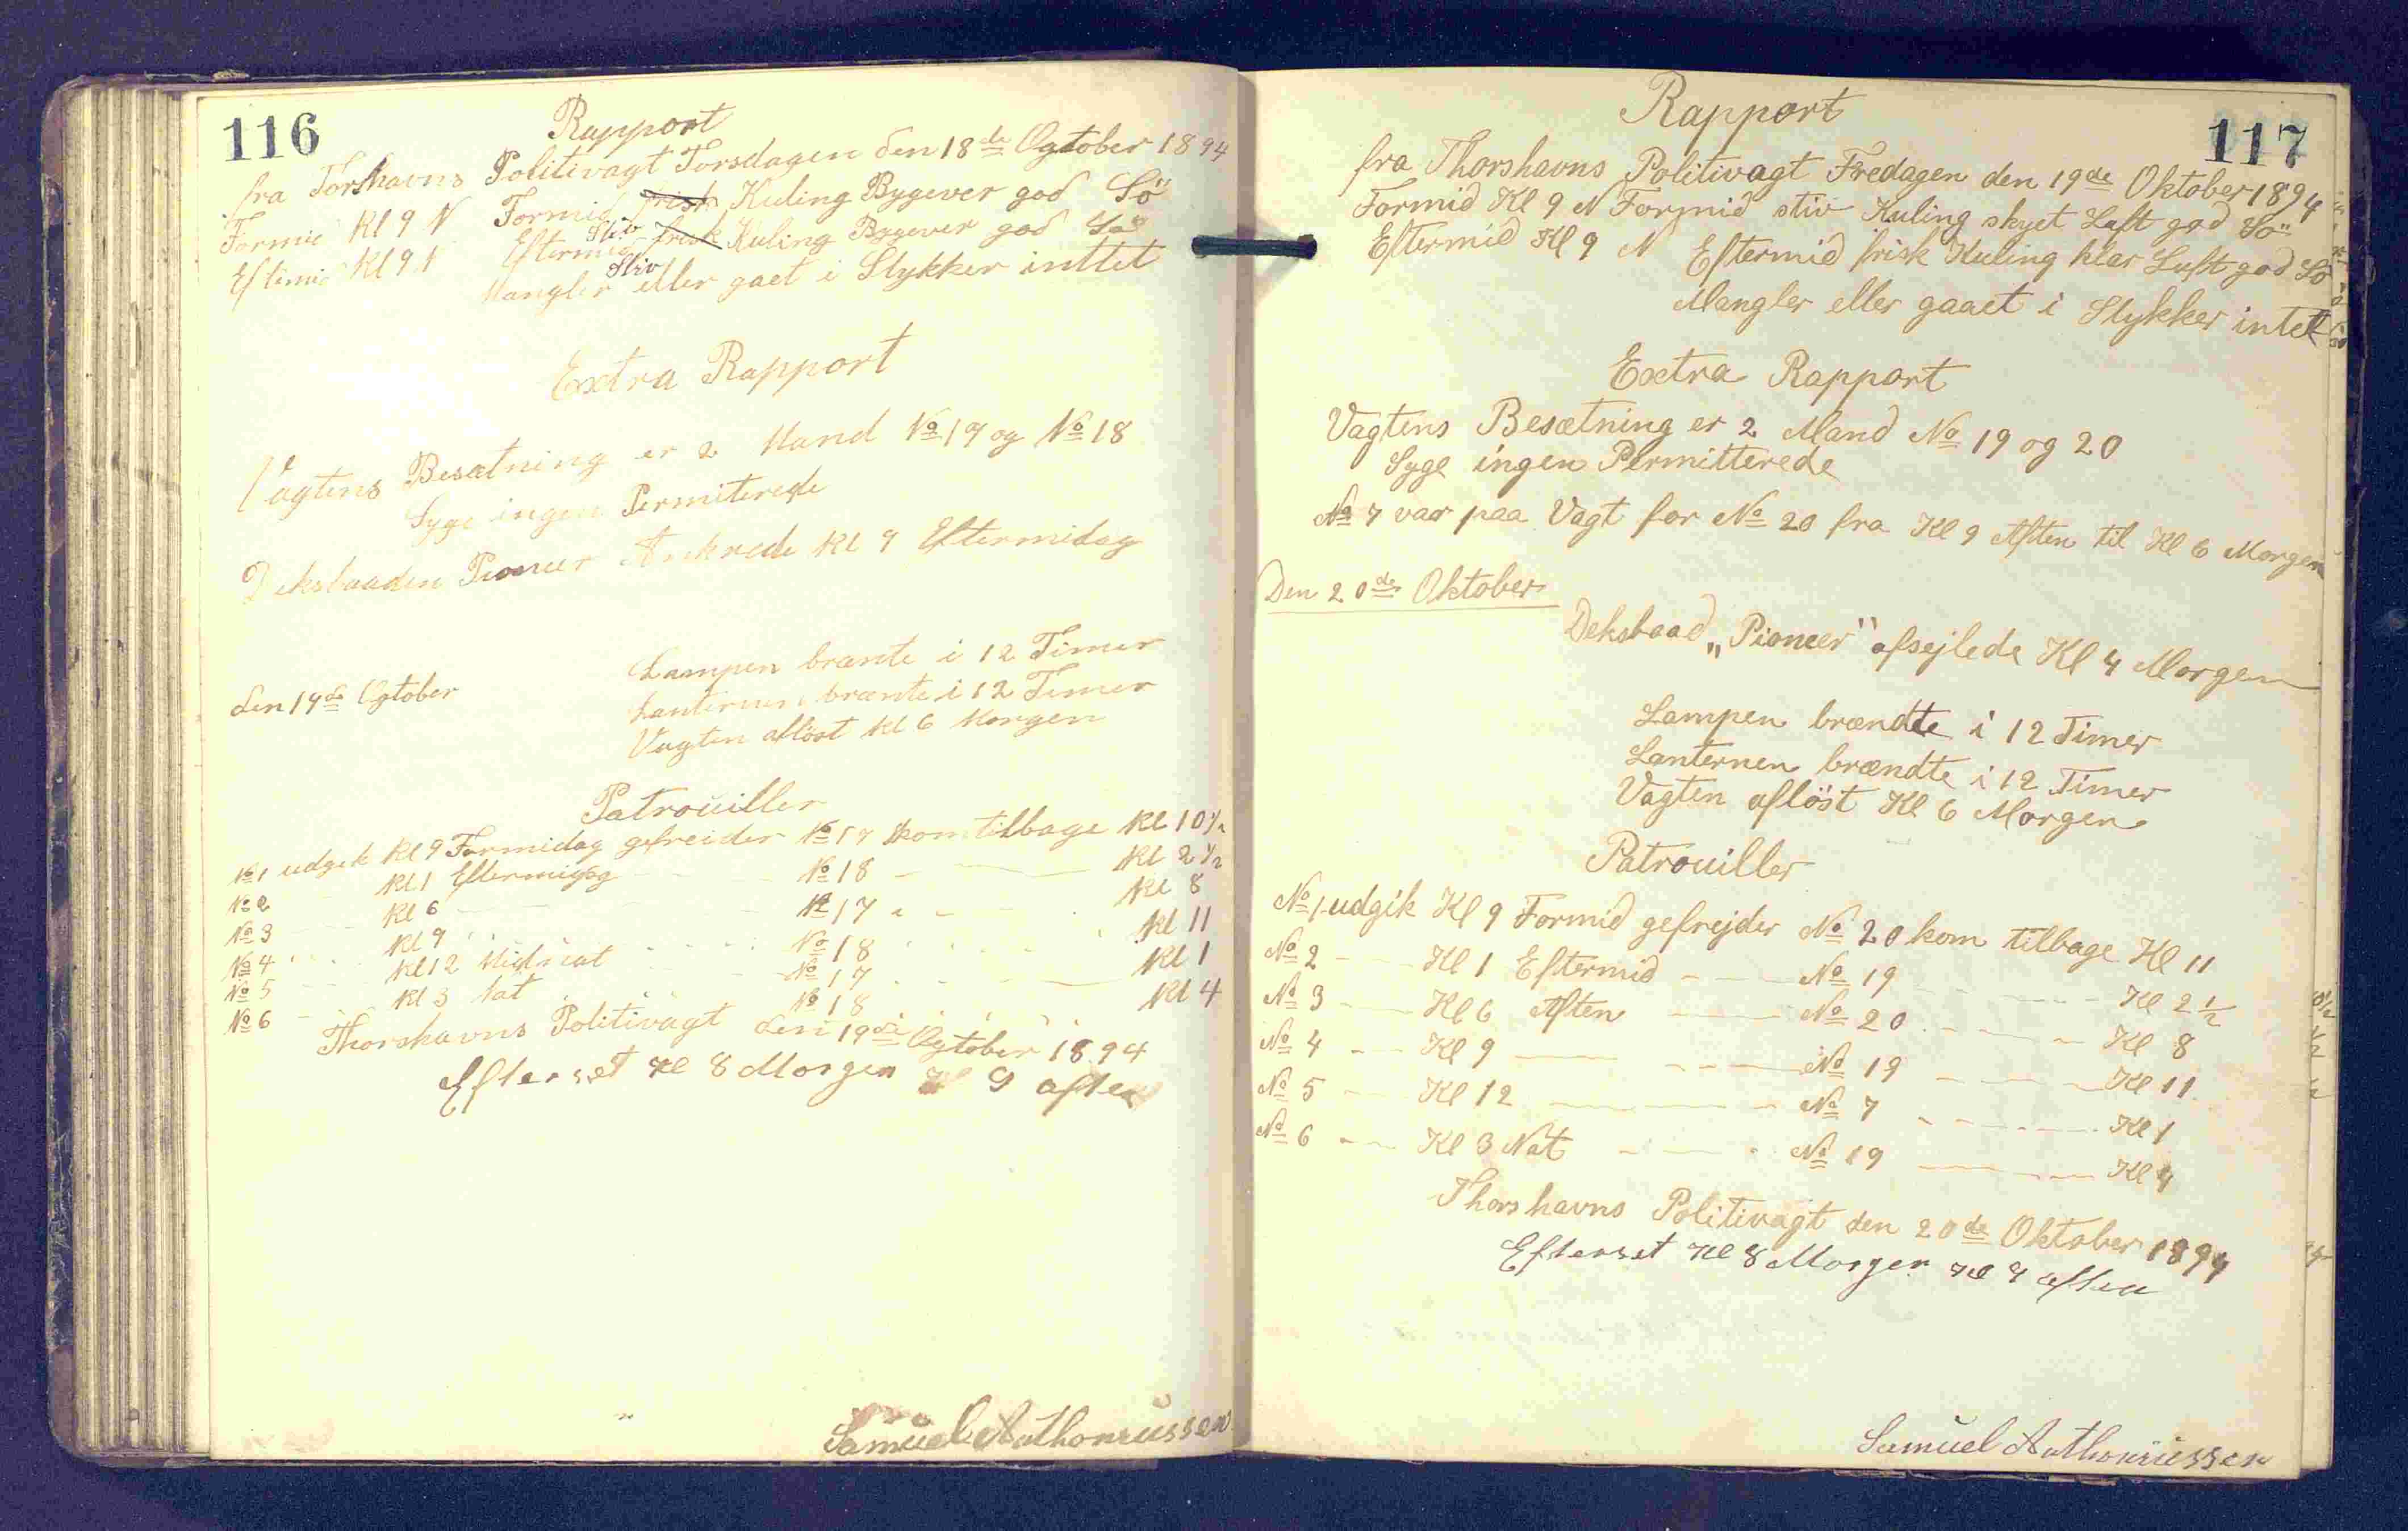 116
Rapport
fra Torshavns Politivagt Torsdagen den 18de Ogtober 1894
Formid Kl 9 N Formid frisk Kuling Bygever god Sö
Stiv
Eftimid Kl 9 N Eftermid frisk Kuling Bygever god Sö
Stiv
Mangler eller gaet i Stykker inttet
Extra Rapport
Vagtens Besætning er 2 Mand No 17 og No 18
Syge ingen Permiterede
Deksbaaden Pioneer Ankrede Kl 9 Eftermidag
den 19de Ogtober
Lampen brænte i 12 Timer
Lanternen brænte i 12 Timer
Vagten aflöst Kl 6 Morgen
Patrouiller
No 1 udgik Kl 9 Formidag gefreider No 17 kom tilbage Kl 10 1/2
No 2 Kl 1 Eftermidag No 18 Kl 2 1/2
No 3 Kl 6 No 17 Kl 8
No 4 Kl 9 No 18 Kl 11
No 5 Kl 12 Midnat No 17 Kl 1
No 6 Kl 3 Nat No 18 Kl 4
Thorshavns Politivagt den 19de Ogtober 1894
Efterset Kl 8 Morgen Kl 9 aften
Samuel Anthoniussen
117
Rapport
fra Thorshavns Politivagt Fredagen den 19de Oktober 1894
Formid Kl 9 N Formid stiv Kuling skyet Luft god Sö
Eftermid Kl 9 N Eftermid frisk Kuling klar Luft god Sö
Mangler eller gaaet i Stykker intet
Extra Rapport
Vagtens Besætning er 2 Mand No 19 og 20
Syge ingen Permitterede
No 7 var paa Vagt for No 20 fra Kl 9 Aften til Kl 6 Morgen
Den 20de Oktober
Deksbaad „Pioneer" afsejlede Kl 4 Morgen
Lampen brændte i 12 Timer
Lanternen brændte i 12 Timer
Vagten aflöst Kl 6 Morgen
Patrouiller
No 1 udgik Kl 9 Formid gefrejder No 20 kom tilbage Kl 11
No 2 Kl 1 Eftermid No 19 Kl 2 1/2
No 3 Kl 6 Aften No 20 Kl 8
No 4 Kl 9 No 19 Kl 11
No 5 Kl 12 No 7 Kl 1
No 6 Kl 3 Nat No 19 Kl 4
Thorshavns Politivagt den 20de Oktober 1894
Efterset Kl 8 Morgen Kl 9 aften
Samuel Anthoniussen